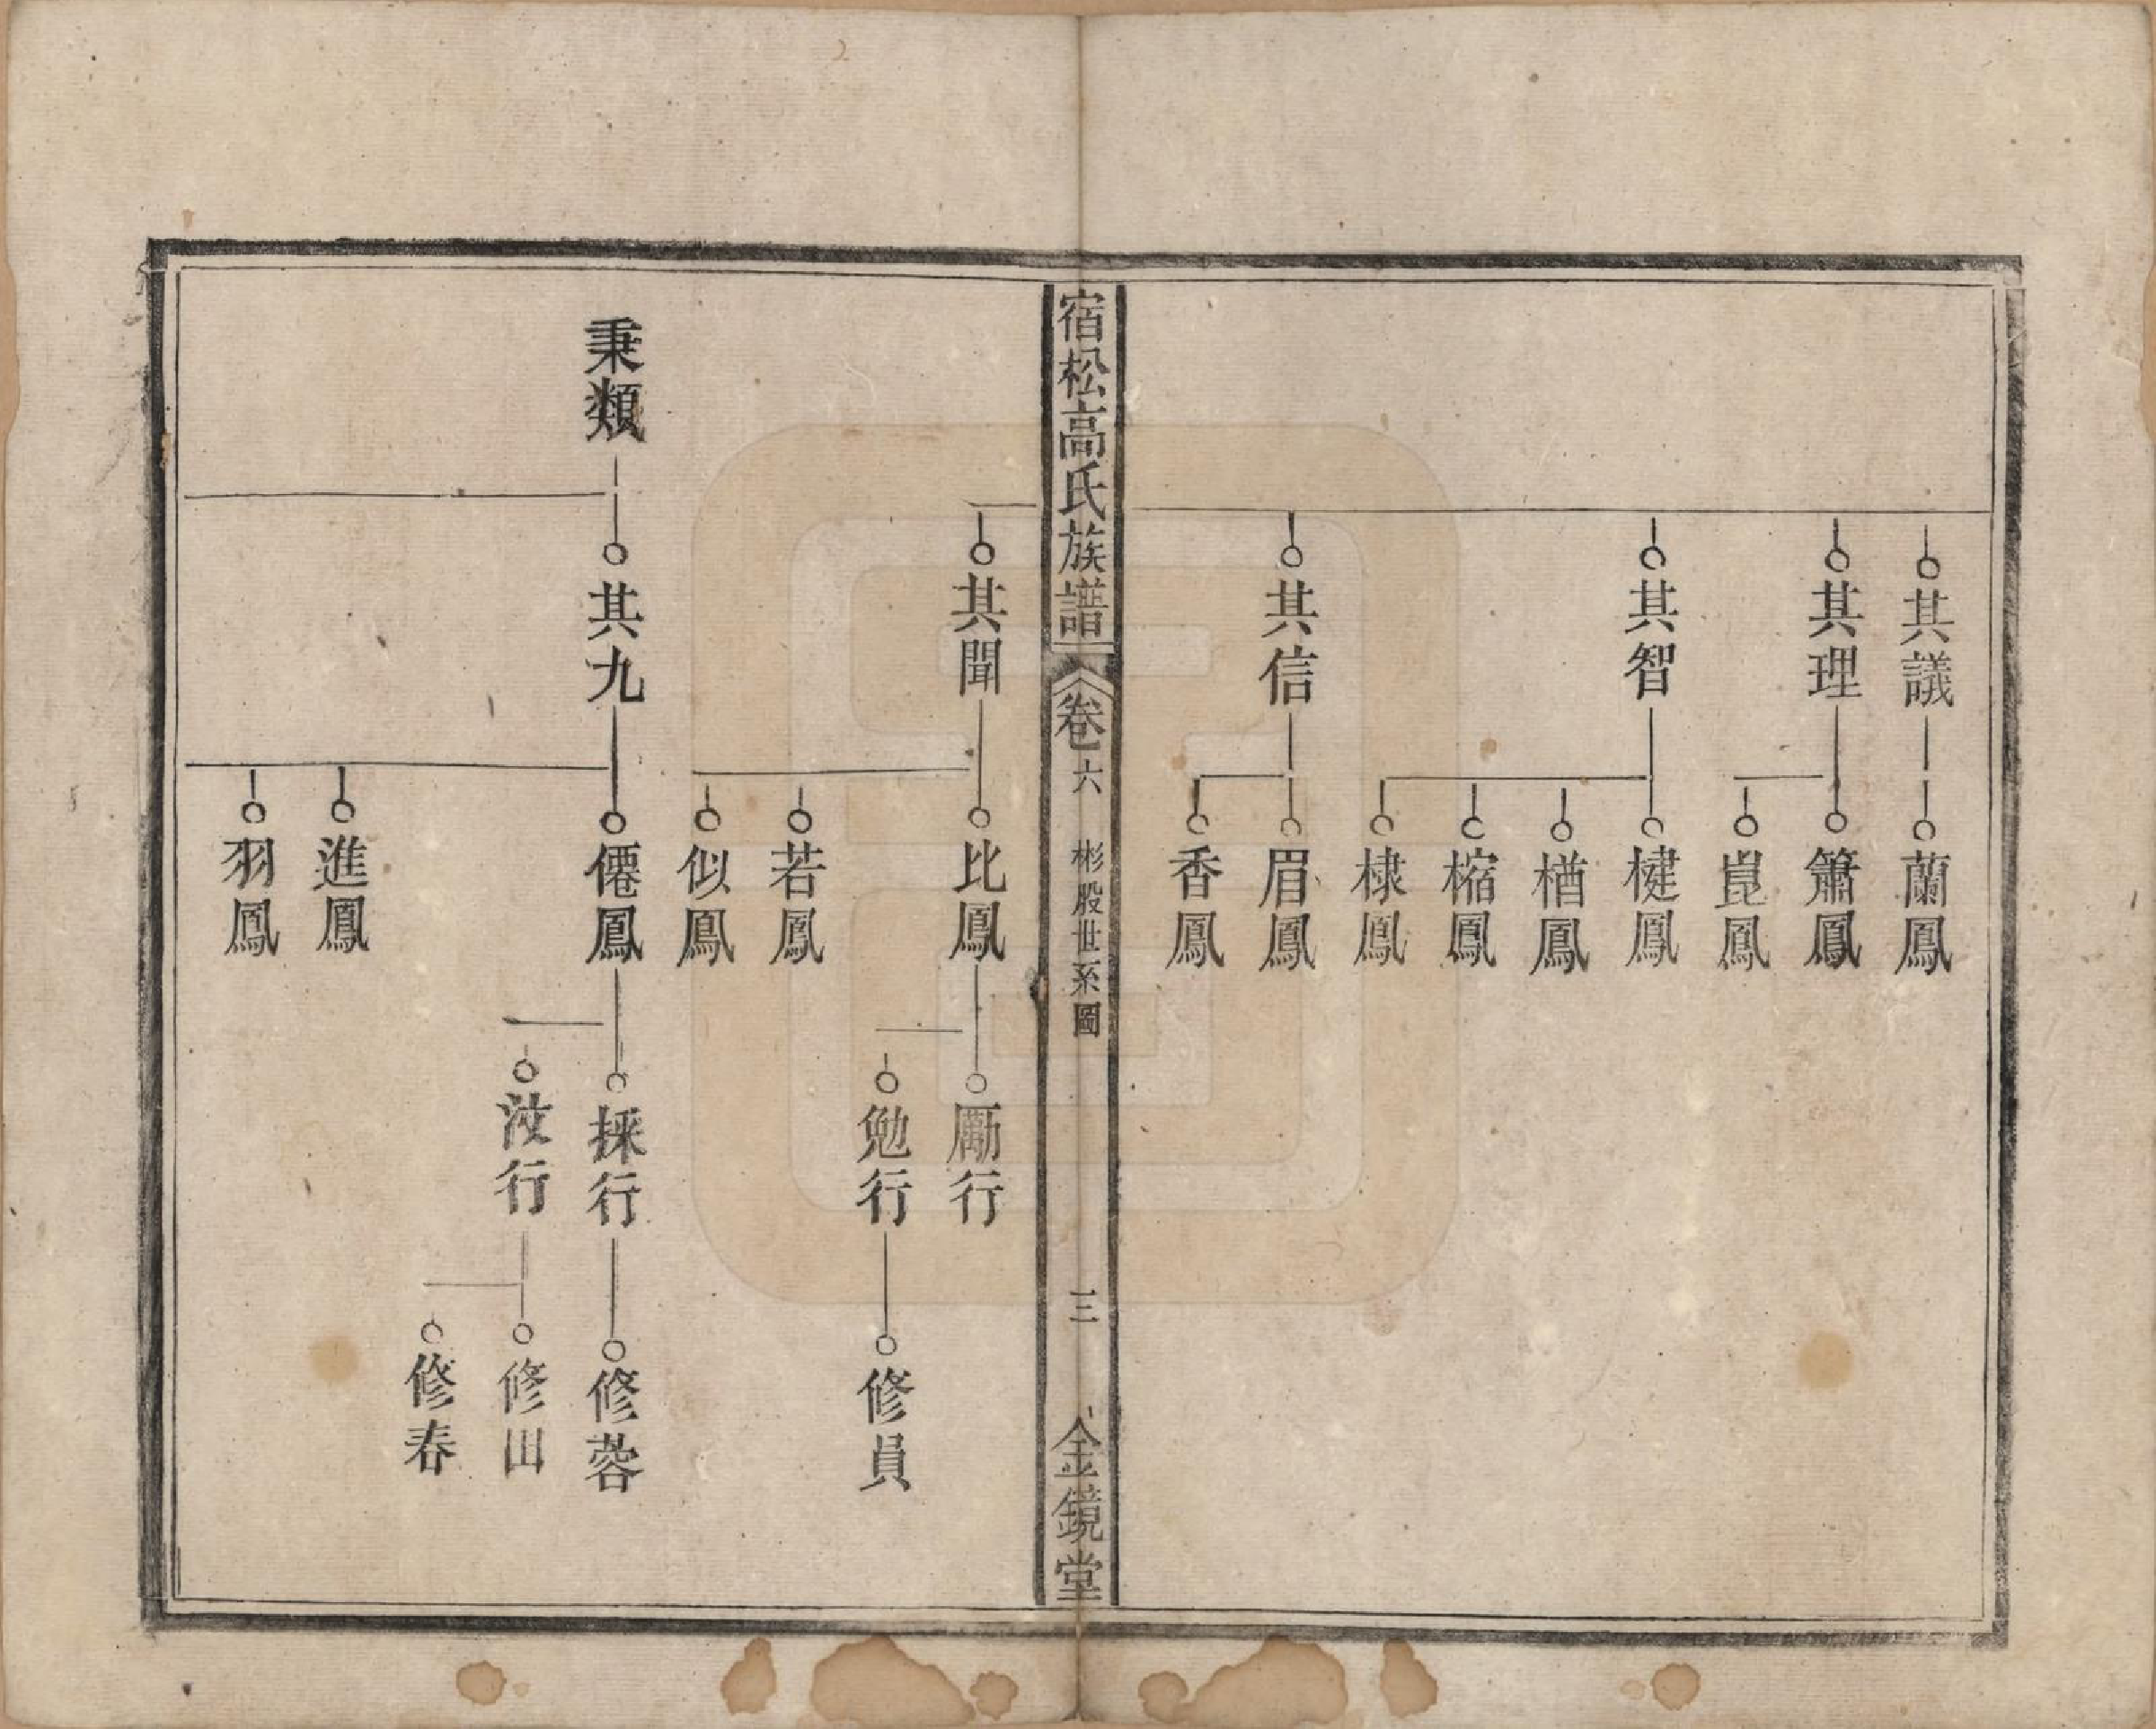 其議
蘭鳳
其理
簫鳳
崑鳳
其智
楗鳳
楢鳳
樎鳳
棣鳳
其信
眉鳳
香鳳
宿松高氏族譜
卷六
彬股世系圖
三
金鏡堂
其聞
比鳳
勵行
勉行
修員
若鳳
似鳳
秉類
其九
僊鳳
採行
修蓉
汝行
修田
修春
進鳳
羽鳳